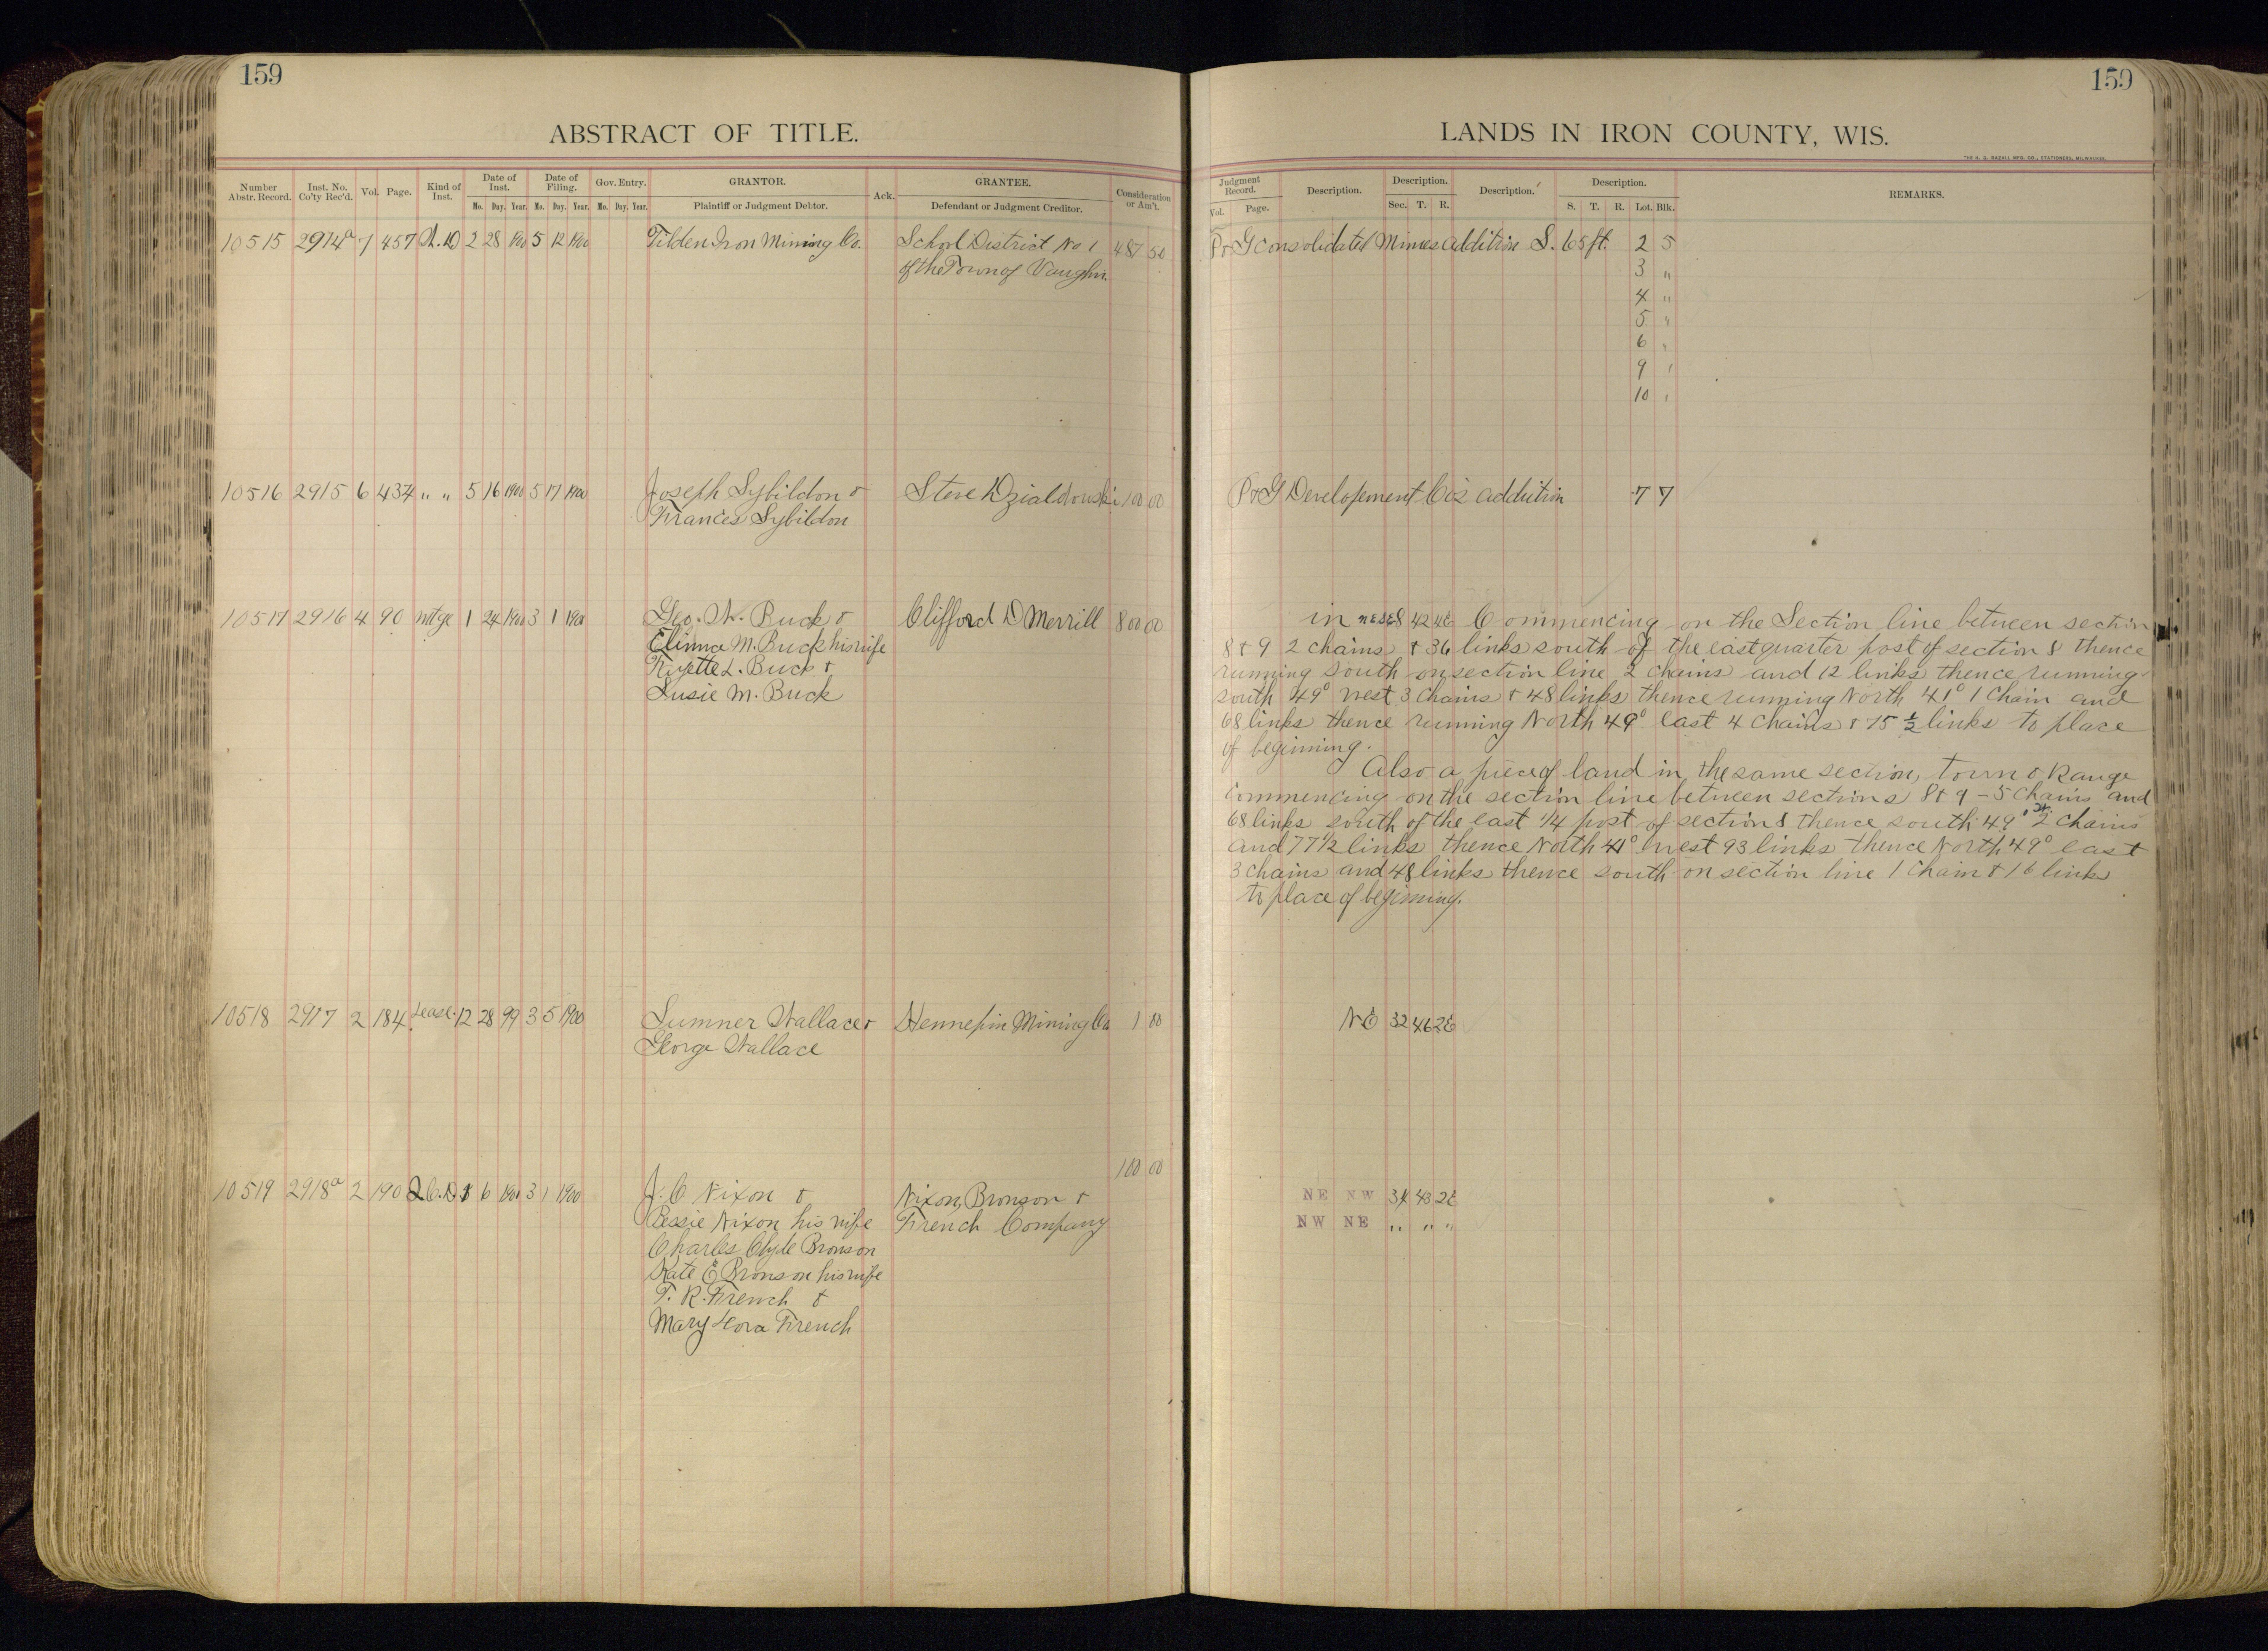 159
ABSTRACT OF TITLE.
Number Abstr. Record. Inst. No. Co'ty Rec'd. Vol. Page. Kind of Inst. Date of Inst. Mo. Day. Year. Date of Filing. Mo. Day. Year. Gov. Entry. Mo. Day. Year. GRANTOR. Plaintiff or Judgment Debtor. Ack. GRANTEE. Defendant or Judgment Creditor. Consideration or Am't.
10515 2914a 7 457 W.D 2 28 1900 5 12 1900 Tilden Iron Mining Co. School District No 1 487 50
of the Town of Vaughn.
10516 2915 6 434 " " 5 16 1900 5 17 1900 Joseph Sybildon & Steve Dzialdowski 100 00
Frances Sybildon
10517 2916 4 90 mtge 1 24 1900 3 1 1900 Geo. W. Buck & Clifford D Merrill 800 00
M. Buck his wife
L. Buck &
Susie M. Buck
10518 2917 2 184 Lease. 12 28 99 3 5 1900 Sumner Wallace & Hennepin Mining Co 1 00
George Wallace
100 00
10519 2918a 2 190 2.C.D. 1 6 1900 3 1 1900 J. C Nixon & Nixon, Bronson &
Bessie Nixon his wife French Company
Charles Clyde Bronson
Kate E Bronson his wife
T. R. French &
Mary French
159
LANDS IN IRON COUNTY, WIS.
THE H. G. RAZALL MFG. CO., STATIONERS, MILWAUKEE.
Judgment Record. Vol. Page. Description. Description. Sec. T. R. Description. Description. S. T. R. Lot. Blk. REMARKS.
P & G Consolidated Mines addition S. 65 ft. 2 5
3 "
4 "
5 "
6 "
9 "
10 "
P & G Developement Co's addition 7 7
in NE SE 8 42 4E Commencing on the Section line between section
8 & 9 2 chains & 36 links south of the east quarter post of section 8 thence
running south on section line 2 chains and 12 links thence running
south 49° west 3 chains & 48 links thence running North 41° 1 Chain and
68 links thence running North 49° east 4 chains & 75 ½ links to place
of beginning.
Also a piece of land in the same section, town & Range
commencing on the section line between sections 8 & 9 - 5 chains and
68 links south of the east 1/4 post of section 8 thence south 49° W 2 chains
and 77 1/2 links thence North 41° west 93 links thence North 49° east
3 chains and 48 links thence south on section line 1 chain & 16 links
to place of beginning.
NE 32 46 2E
NE NW 34 43 2E
NW NE " " "